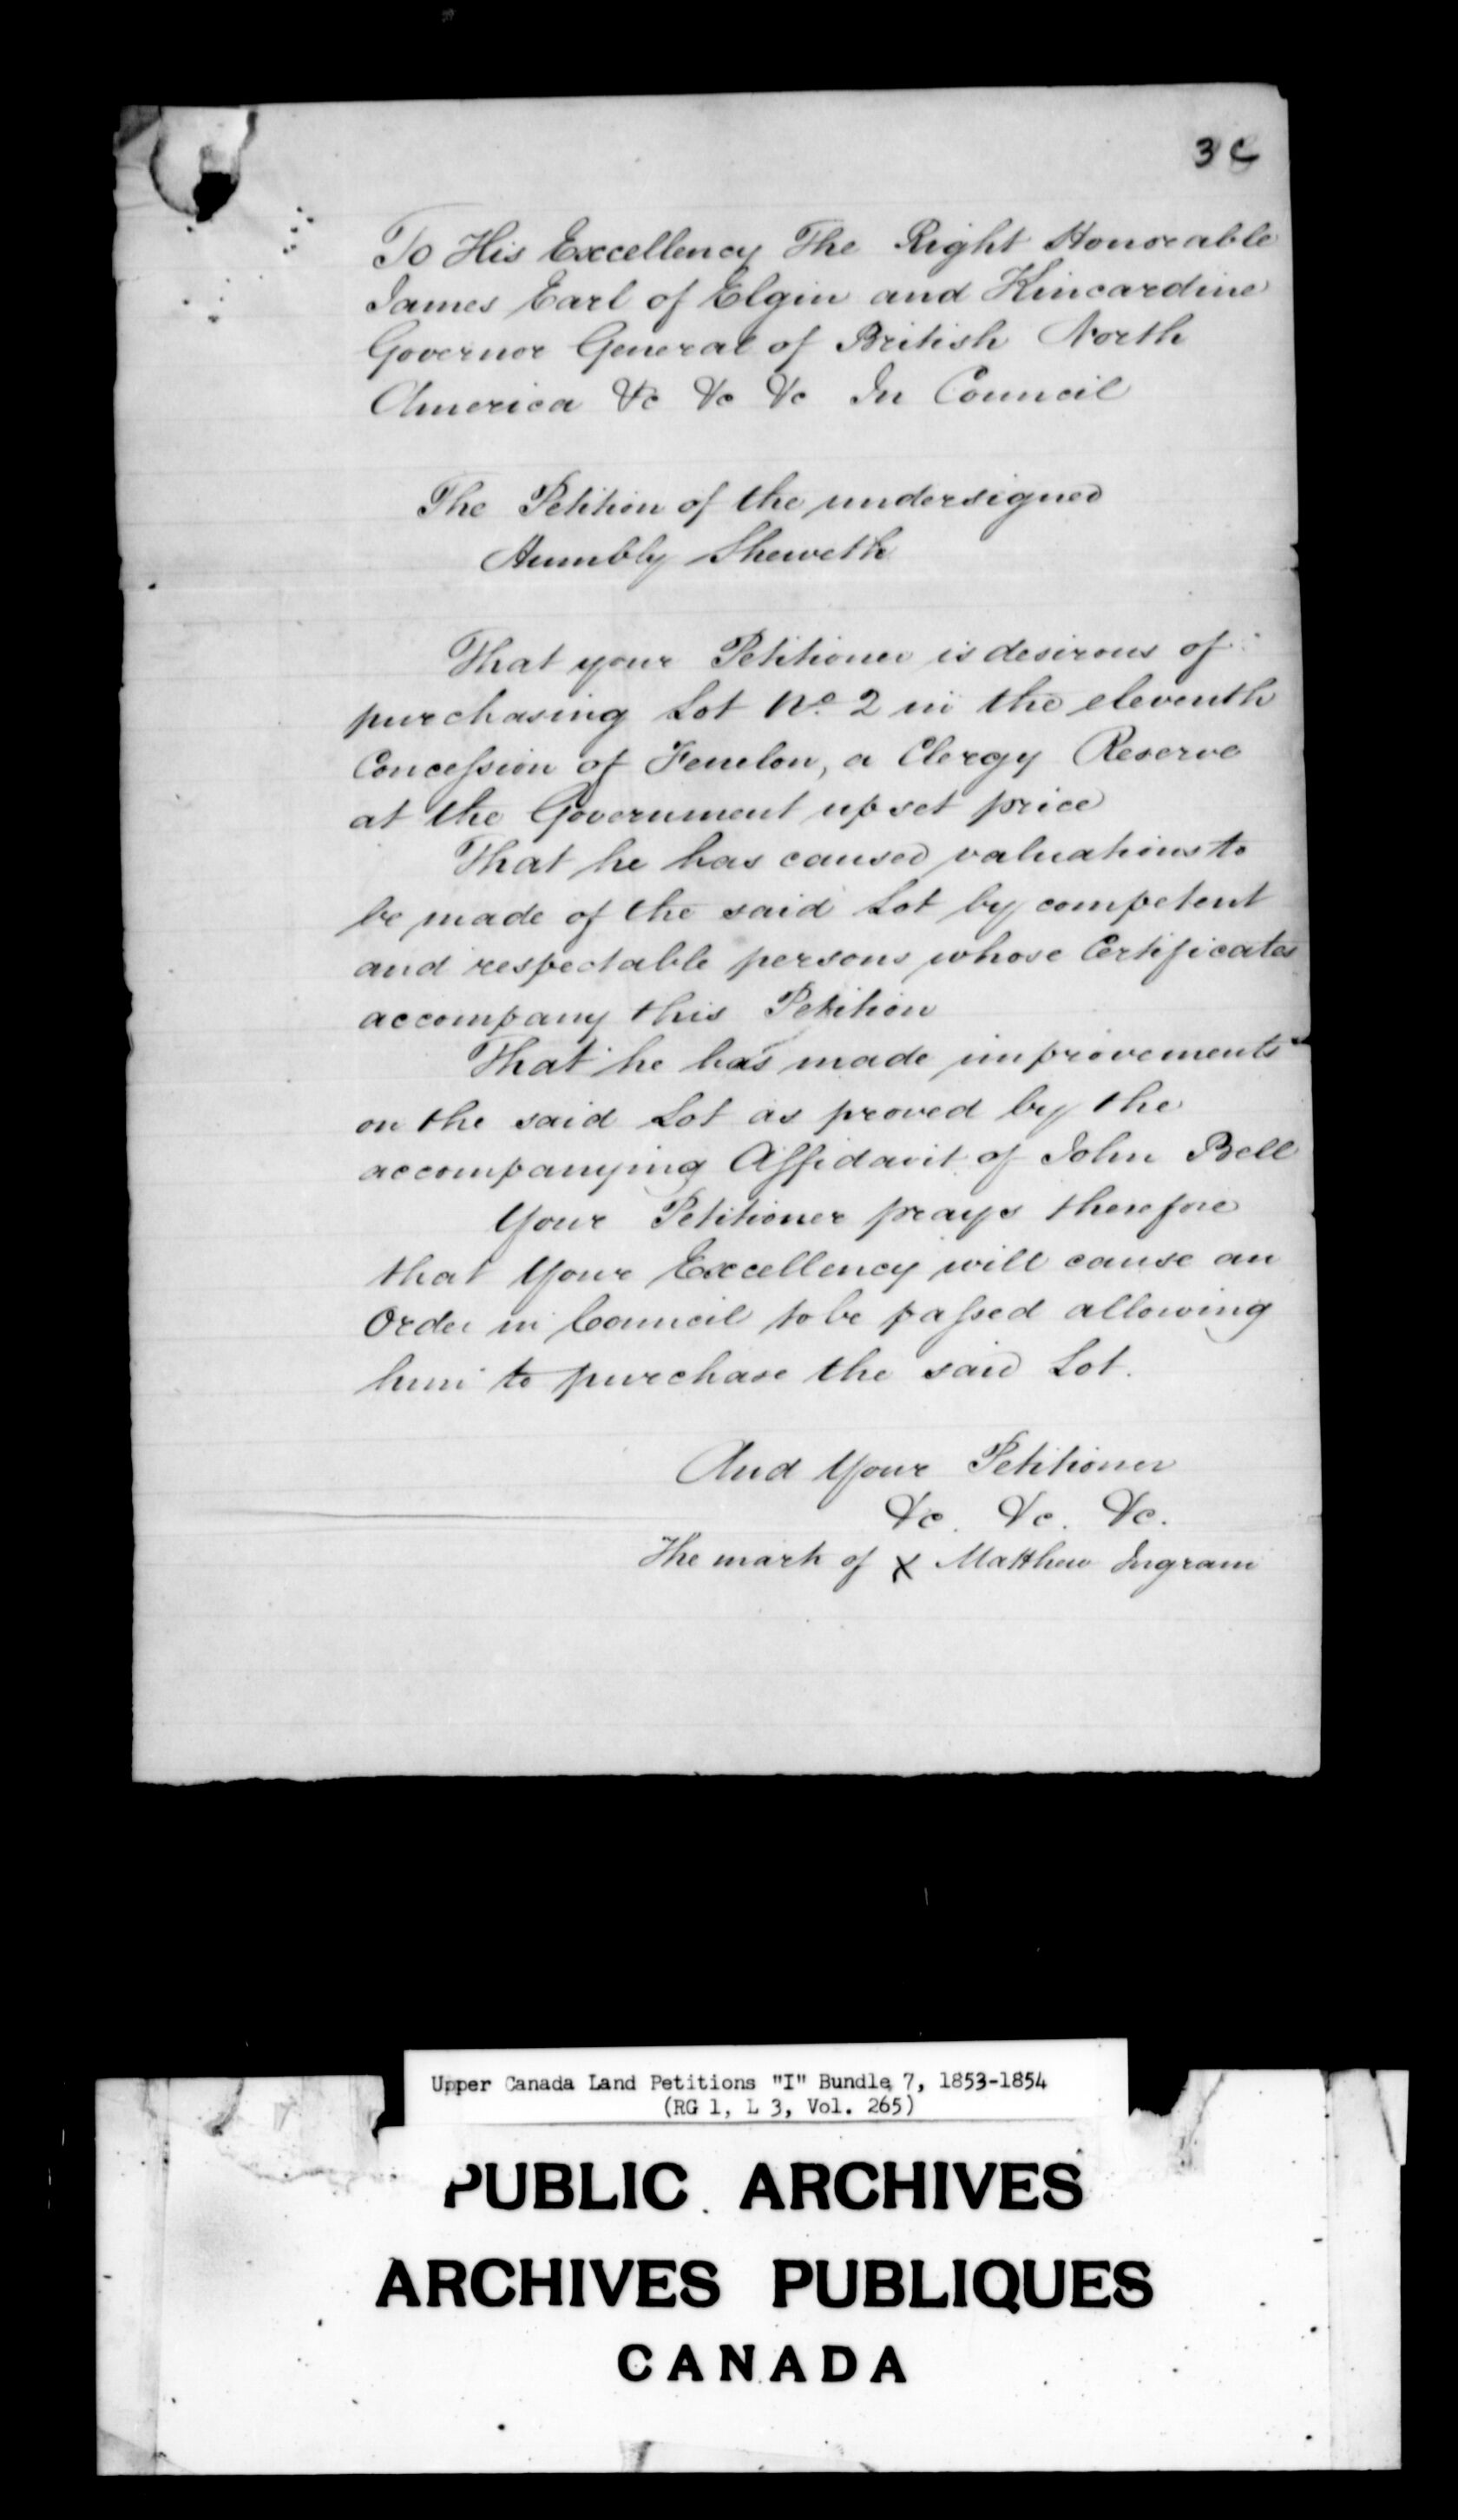 3c
To His Excellency The Right Honorable
James Earl of Elgin and Kincardine
Governor General of British North
America &c &c &c In Council
The Petition of the undersigned
Humbly Sheweth
That your Petitioner is desirous of
purchasing Lot No. 2 in the eleventh
Concession of Fenelon, a Clergy Reserve
at the Government upset price
That he has caused valuations to
be made of the said Lot by competent
and respectable persons whose Certificates
accompany this Petition
That he has made improvements
on the said Lot as proved by the
accompanying Affidavit of John Bell
Your Petitioner prays therefore
that Your Excellency will cause an
Order in Council to be passed allowing
him to purchase the said Lot.
And Your Petitioner
&c. &c. &c.
The mark of X Matthew Ingram
Upper Canada Land Petitions "I" Bundle 7, 1853-1854
(RG 1, L 3, Vol. 265)
PUBLIC ARCHIVES
ARCHIVES PUBLIQUES
CANADA